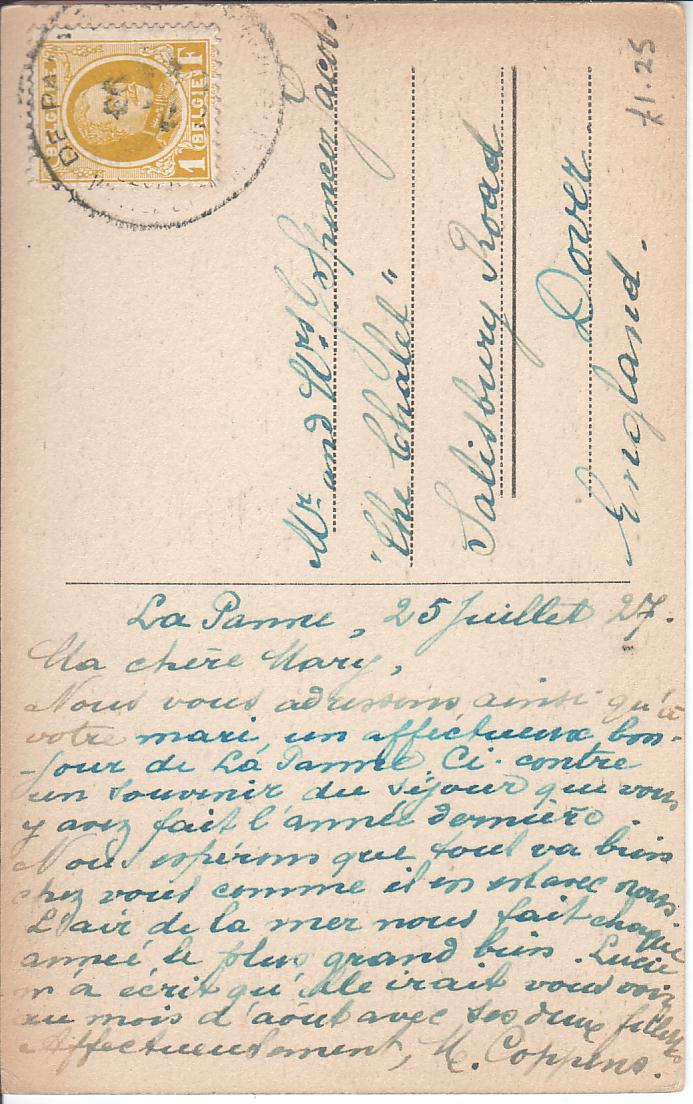 £1.25
BELGIË
1 F
BELGIE
DE PA
Mr. and Mrs Spencer Jacobs
"The Chalet"
Salisbury Road
Dover
England.
La Panne, 25 Juillet 27.
Ma chère Mary,
Nous vous adressons ainsi qu'à
votre mari un afféctueux bon-
-jour de La Panne Ci-contre
un souvenir du séjour que vous
y avez fait l'année dernière.
Nous espérons que tout va bien
chez vous comme il en est avec nous
L'air de la mer nous fait chaque
année le plus grand bien. Lucie
m'à écrit qu'elle irait vous voir
au mois d'aout avec ses deux filles
Affectueusement, M. Coppens.